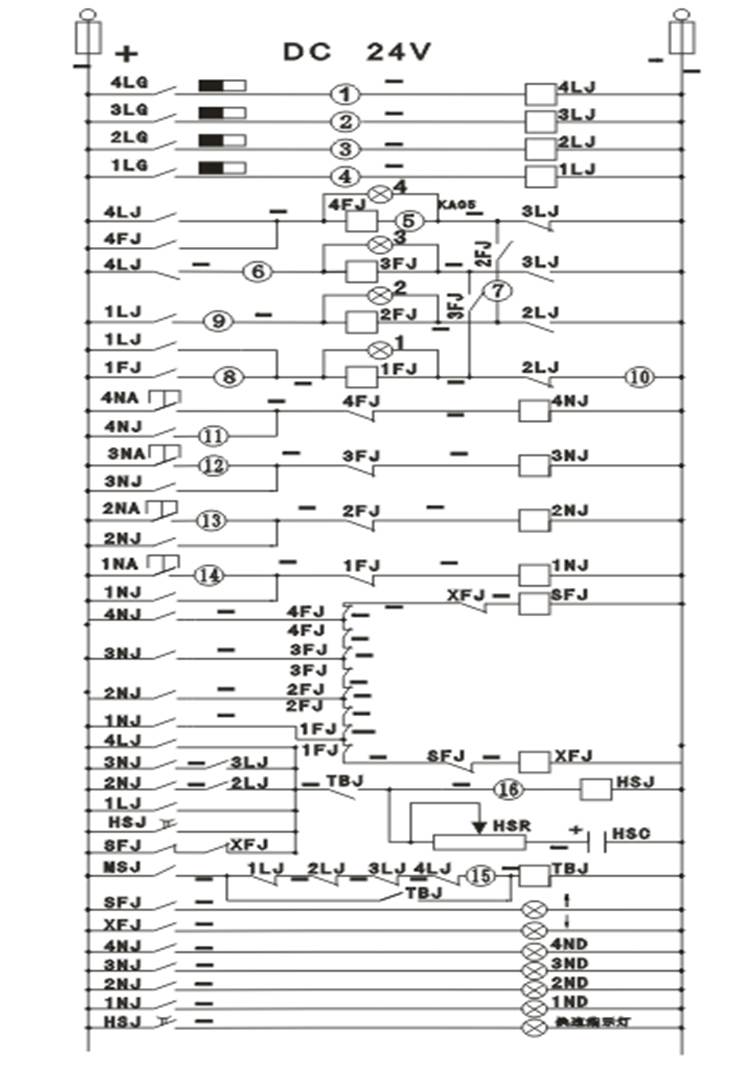 + DC 24V
4LG ① 4LJ
3LG ② 3LJ
2LG ③ 2LJ
1LG ④ 1LJ
4
4LJ 4FJ ⑤ KA05 3LJ
4FJ 2FJ
3
4LJ ⑥ 3FJ 3LJ
2 3FJ ⑦
1LJ ⑨ 2FJ 2LJ
1LJ 1
1FJ ⑧ 1FJ 2LJ ⑩
4NA 4FJ 4NJ
4NJ ⑪
3NA ⑫ 3FJ 3NJ
3NJ
2NA ⑬ 2FJ 2NJ
2NJ
1NA ⑭ 1FJ 1NJ
1NJ XFJ SFJ
4NJ 4FJ
4FJ
3NJ 3FJ
3FJ
2NJ 2FJ
2FJ
1NJ 1FJ
4LJ 1FJ SFJ XFJ
3NJ 3LJ
2NJ 2LJ TBJ ⑯ HSJ
1LJ
HSJ HSR + HSC
SFJ XFJ
MSJ 1LJ 2LJ 3LJ 4LJ ⑮ TBJ
TBJ
SFJ
XFJ
4NJ 4ND
3NJ 3ND
2NJ 2ND
1NJ 1ND
HSJ 快速指示灯